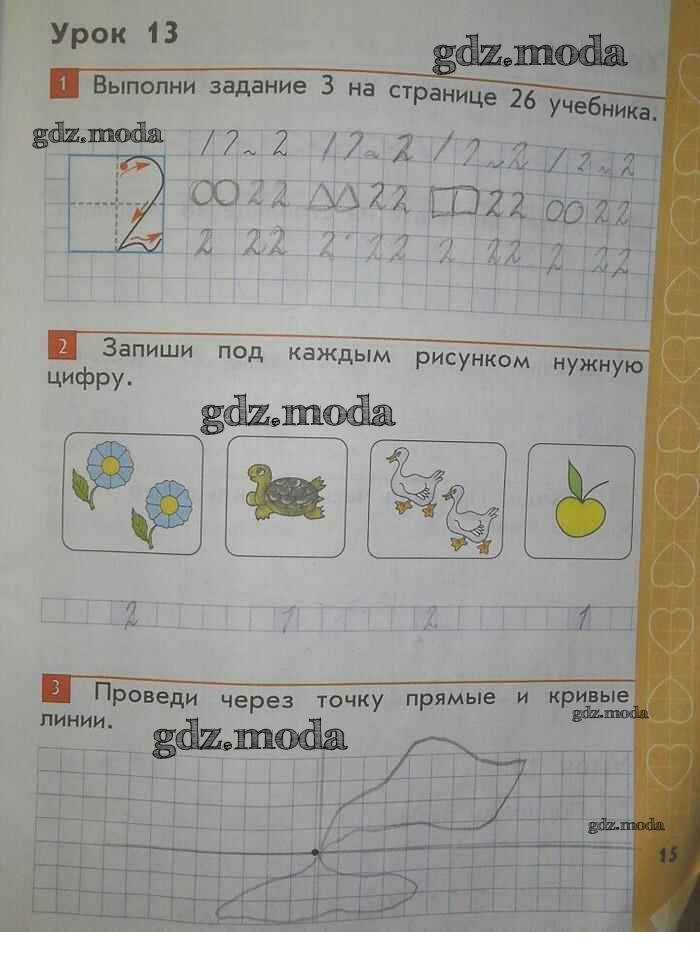 Урок 13
gdz.moda
1 Выполни задание 3 на странице 26 учебника.
gdz.moda
2 2 2 2
22 22 22 22
2 22 2 22 2 22 2 22
2 Запиши под каждым рисунком нужную
цифру.
gdz.moda
2 1 2 1
3 Проведи через точку прямые и кривые
линии.
gdz.moda
gdz.moda
gdz.moda
15